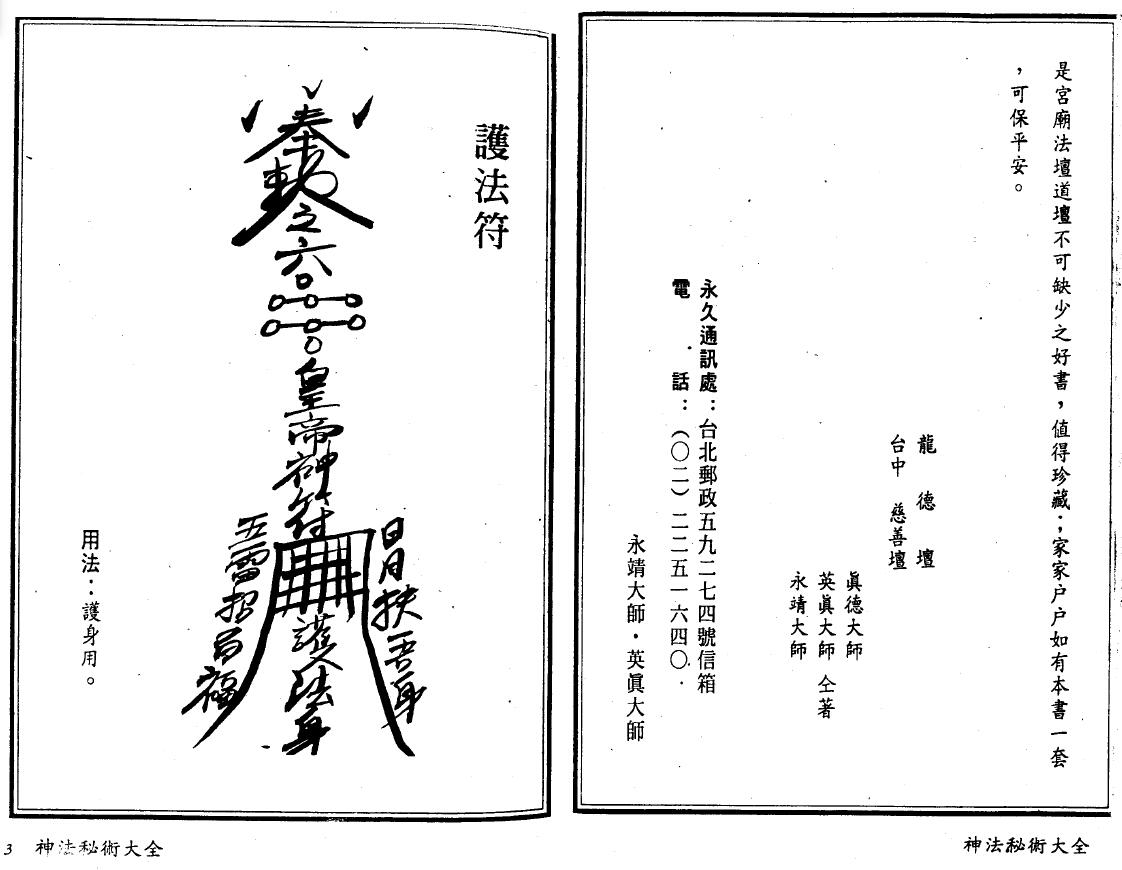 是宮廟法壇道壇不可缺少之好書，值得珍藏；家家户户如有本書一套
，可保平安。
龍德壇
台中　慈善壇
眞德大師
英眞大師　仝著
永靖大師
永久通訊處：台北郵政五九二七四號信箱
電　話：（〇二）二二五一六四〇．
永靖大師・英眞大師
神法秘術大全
護法符
奉勅之六
皇帝神符
日月扶吾身
護法身
五雷招百福
用法：護身用。
3 神法秘術大全